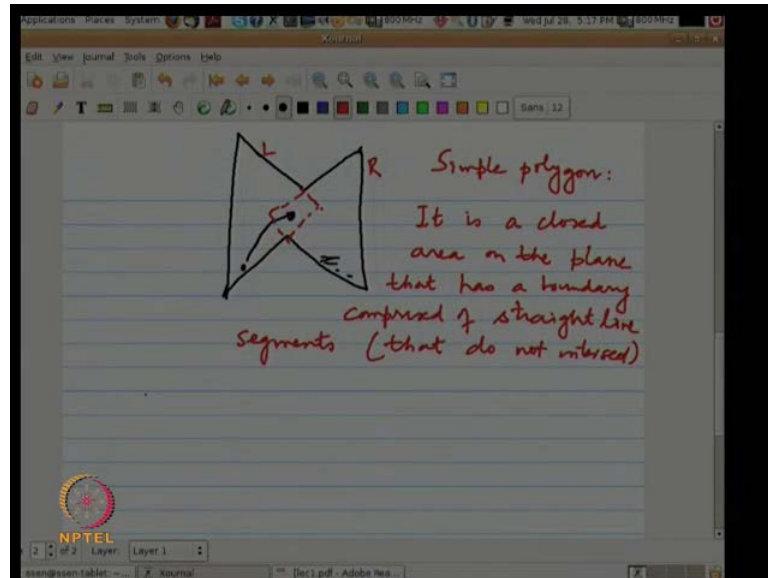 Applications Places System 800 MHz Wed Jul 28, 5:17 PM 800 MHz
Xournal
Edit View Journal Tools Options Help
Sans 12
L
R
Simple polygon:
It is a closed
area on the plane
that has a boundary
comprised of straight line
segments (that do not intersect)
NPTEL
2 of 2 Layer: Layer 1
ssen@ssen-tablet: ~... Xournal [lec1.pdf - Adobe Rea...